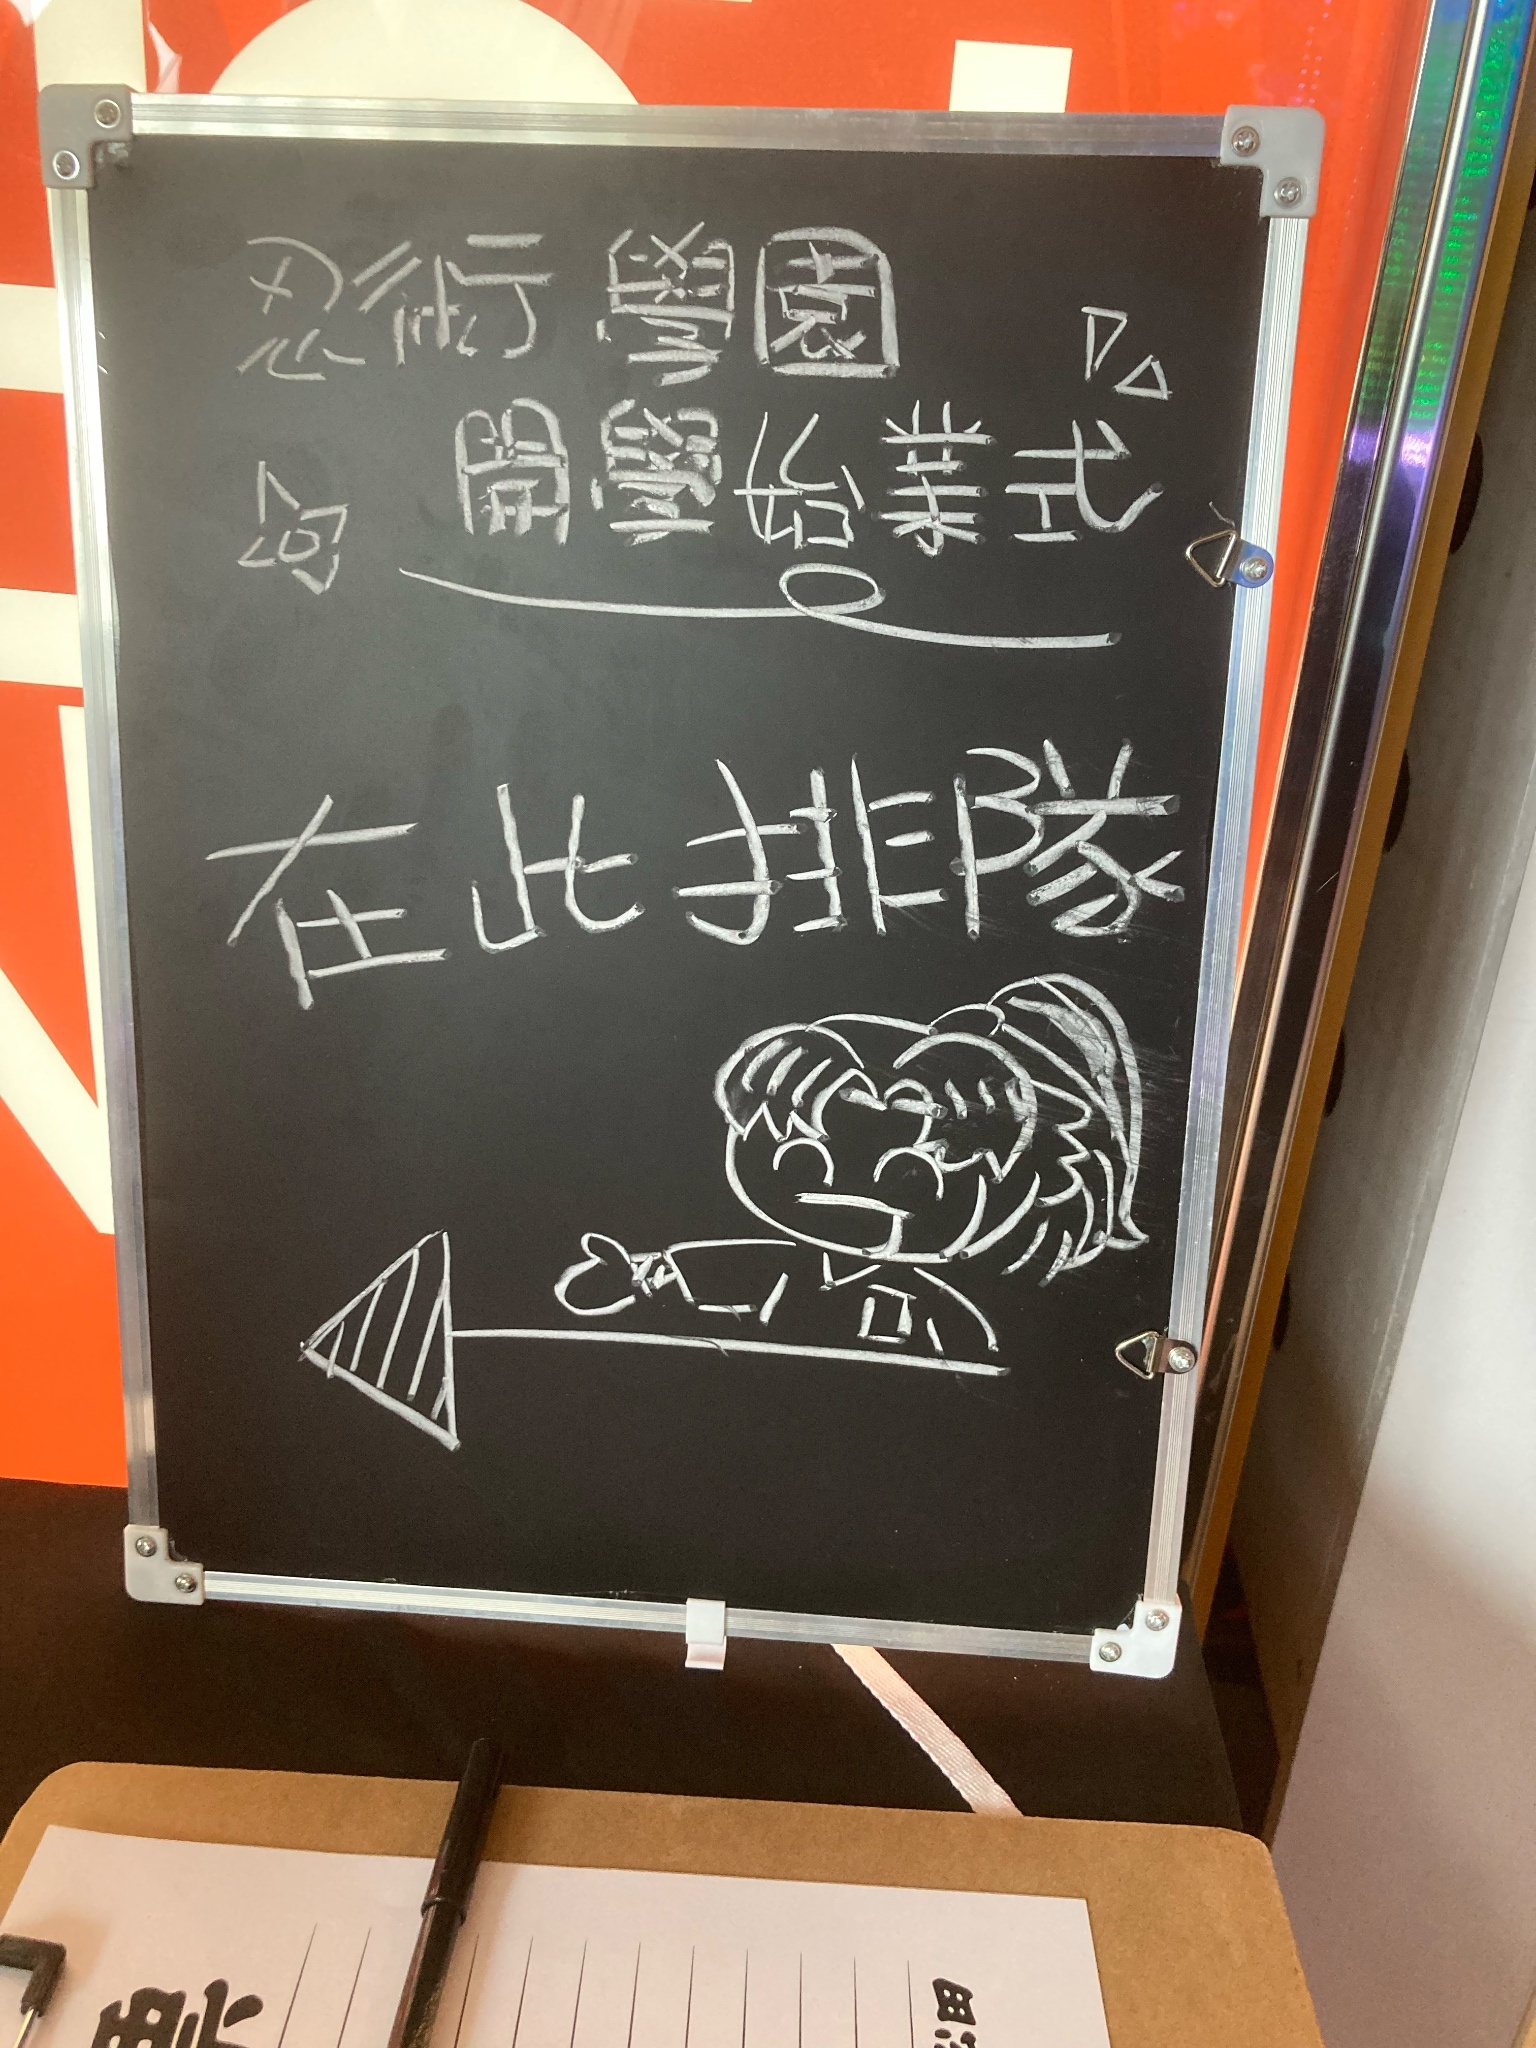 忍術學園
開學始業式
在此排隊